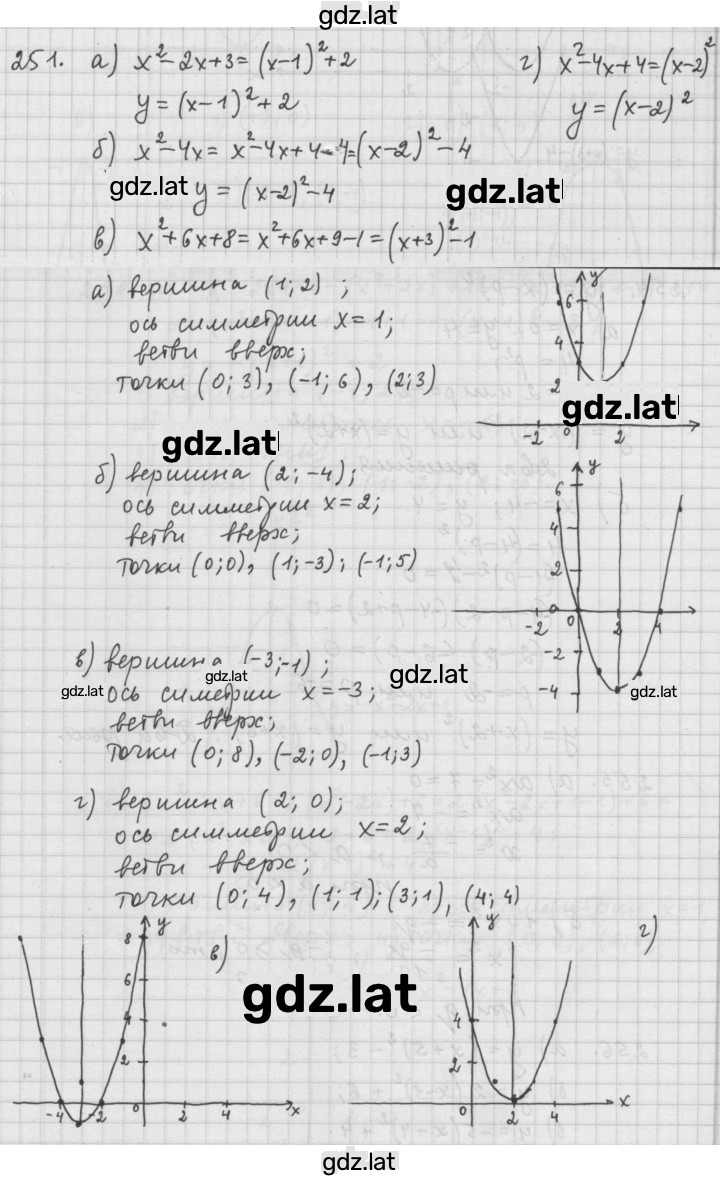 gdz.lat
251. а) x²-2x+3=(x-1)²+2
y=(x-1)²+2
б) x²-4x=x²-4x+4-4=(x-2)²-4
gdz.lat y=(x-2)²-4
в) x²+6x+8=x²+6x+9-1=(x+3)²-1
г) x²-4x+4=(x-2)²
y=(x-2)²
gdz.lat
а) вершина (1;2);
ось симметрии x=1;
ветви вверх;
точки (0;3), (-1;6), (2;3)
y
6
4
2
-2 0 2
gdz.lat
gdz.lat
б) вершина (2;-4);
ось симметрии x=2;
ветви вверх;
точки (0;0), (1;-3); (-1;5)
y
6
4
2
-2 0 2 4
-2
-4
gdz.lat
в) вершина (-3;-1);
gdz.lat
gdz.lat
gdz.lat
ось симетрии x=-3;
ветви вверх;
точки (0;8), (-2;0), (-1;3)
г) вершина (2;0);
ось симметрии x=2;
ветви вверх;
точки (0;4), (1;1); (3;1), (4;4)
y
8
6
4
2
-4 -2 0 2 4 x
в)
gdz.lat
y
4
2
0 2 4 x
г)
gdz.lat